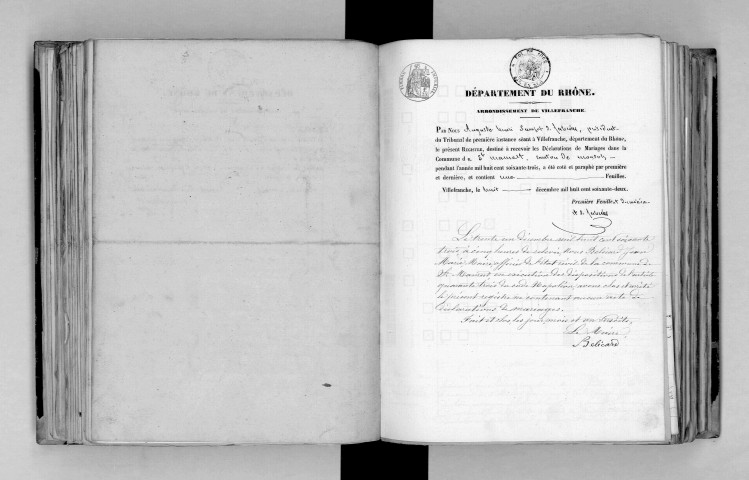 DÉPARTEMENT DU RHÔNE.
ARRONDISSEMENT DE VILLEFRANCHE.
PAR NOUS Auguste président
du Tribunal de première instance séant à Villefranche, département du Rhône,
le présent REGISTRE, destiné à recevoir les Déclarations de Mariages dans la
Commune d e St Mamert, canton de Monsols
pendant l'année mil huit cent soixante-trois, a été coté et paraphé par première
et dernière, et contient une Feuilles.
Villefranche, le huit décembre mil huit cent soixante-deux.
Première Feuille
Le trente un décembre mil huit cent soixante
trois à cinq heures du soir, Nous Belicard Jean
Marie Maire, officier de l'état civil de la commune de
St Mamert en exécution des dispositions de l'article
quarante trois du code Napoléon, avons clos et arrêté
le présent registre ne contenant aucun acte de
Déclarations de mariages.
Fait et clos les jour, mois et an susdits,
Le Maire
Belicard